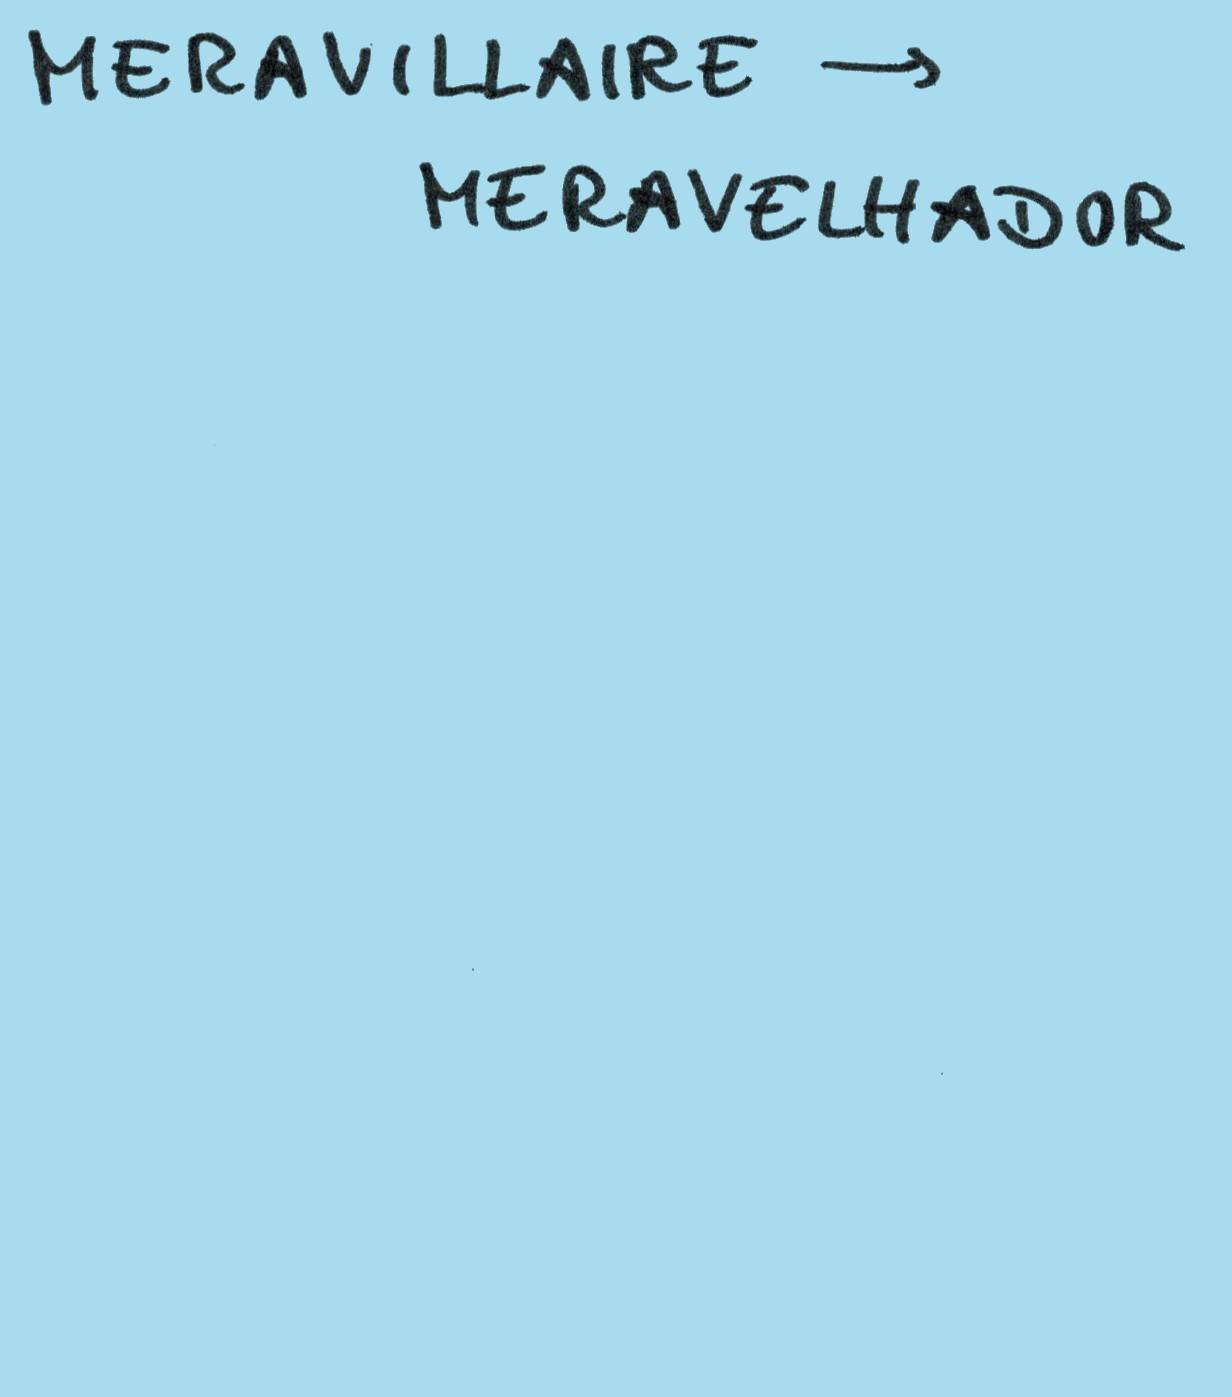 MERAVILLAIRE →
MERAVELHADOR